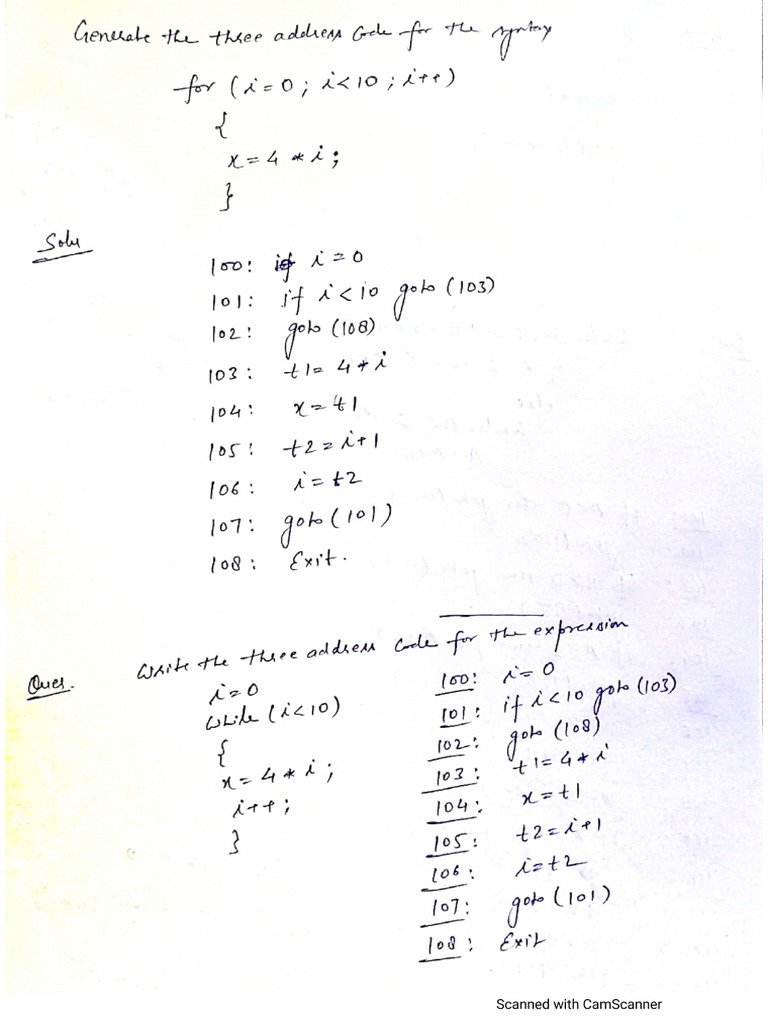 Generate the three address Code for the syntax
for (i=0; i<10; i++)
{
x=4 * i;
}
Solu
100: i=0
101: if i<10 goto (103)
102: goto (108)
103: t1= 4*i
104: x=t1
105: t2=i+1
106: i=t2
107: goto (101)
108: Exit.
Ques. Write the three address Code for the expression
i=0
while (i<10)
{
x=4 * i;
i++;
}
100: i=0
101: if i<10 goto (103)
102: goto (108)
103: t1=4*i
104: x=t1
105: t2=i+1
106: i=t2
107: goto (101)
108: Exit
Scanned with CamScanner